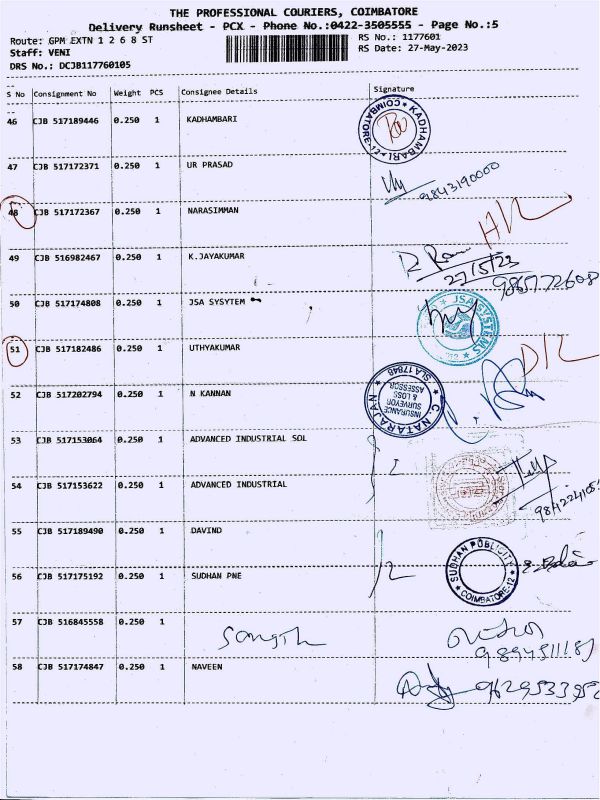 THE PROFESSIONAL COURIERS, COIMBATORE
Delivery Runsheet - PCX - Phone No.:0422-3505555 - Page No.:5
Route: GPM EXTN 1 2 6 8 ST RS No.: 1177601
Staff: VENI RS Date: 27-May-2023
DRS No.: DCJB117760105
S No Consignment No Weight PCS Consignee Details Signature
46 CJB 517189446 0.250 1 KADHAMBARI
KADHAMBARI COIMBATORE-12
47 CJB 517172371 0.250 1 UR PRASAD
9843190000
48 CJB 517172367 0.250 1 NARASIMMAN
49 CJB 516982467 0.250 1 K.JAYAKUMAR
27/5/23
9865772608
50 CJB 517174808 0.250 1 JSA SYSYTEM
JSA SYSTEMS
51 CJB 517182486 0.250 1 UTHYAKUMAR
52 CJB 517202794 0.250 1 N KANNAN
C. NATARAJAN SLA17848
INSURANCE
SURVEYOR
& LOSS
ASSESSOR
53 CJB 517153064 0.250 1 ADVANCED INDUSTRIAL SOL
54 CJB 517153622 0.250 1 ADVANCED INDUSTRIAL
55 CJB 517189490 0.250 1 DAVIND
56 CJB 517175192 0.250 1 SUDHAN PNE
2
SUDHAN PUBLICITY COIMBATORE-12
57 CJB 516845558 0.250 1
58 CJB 517174847 0.250 1 NAVEEN
9629533952